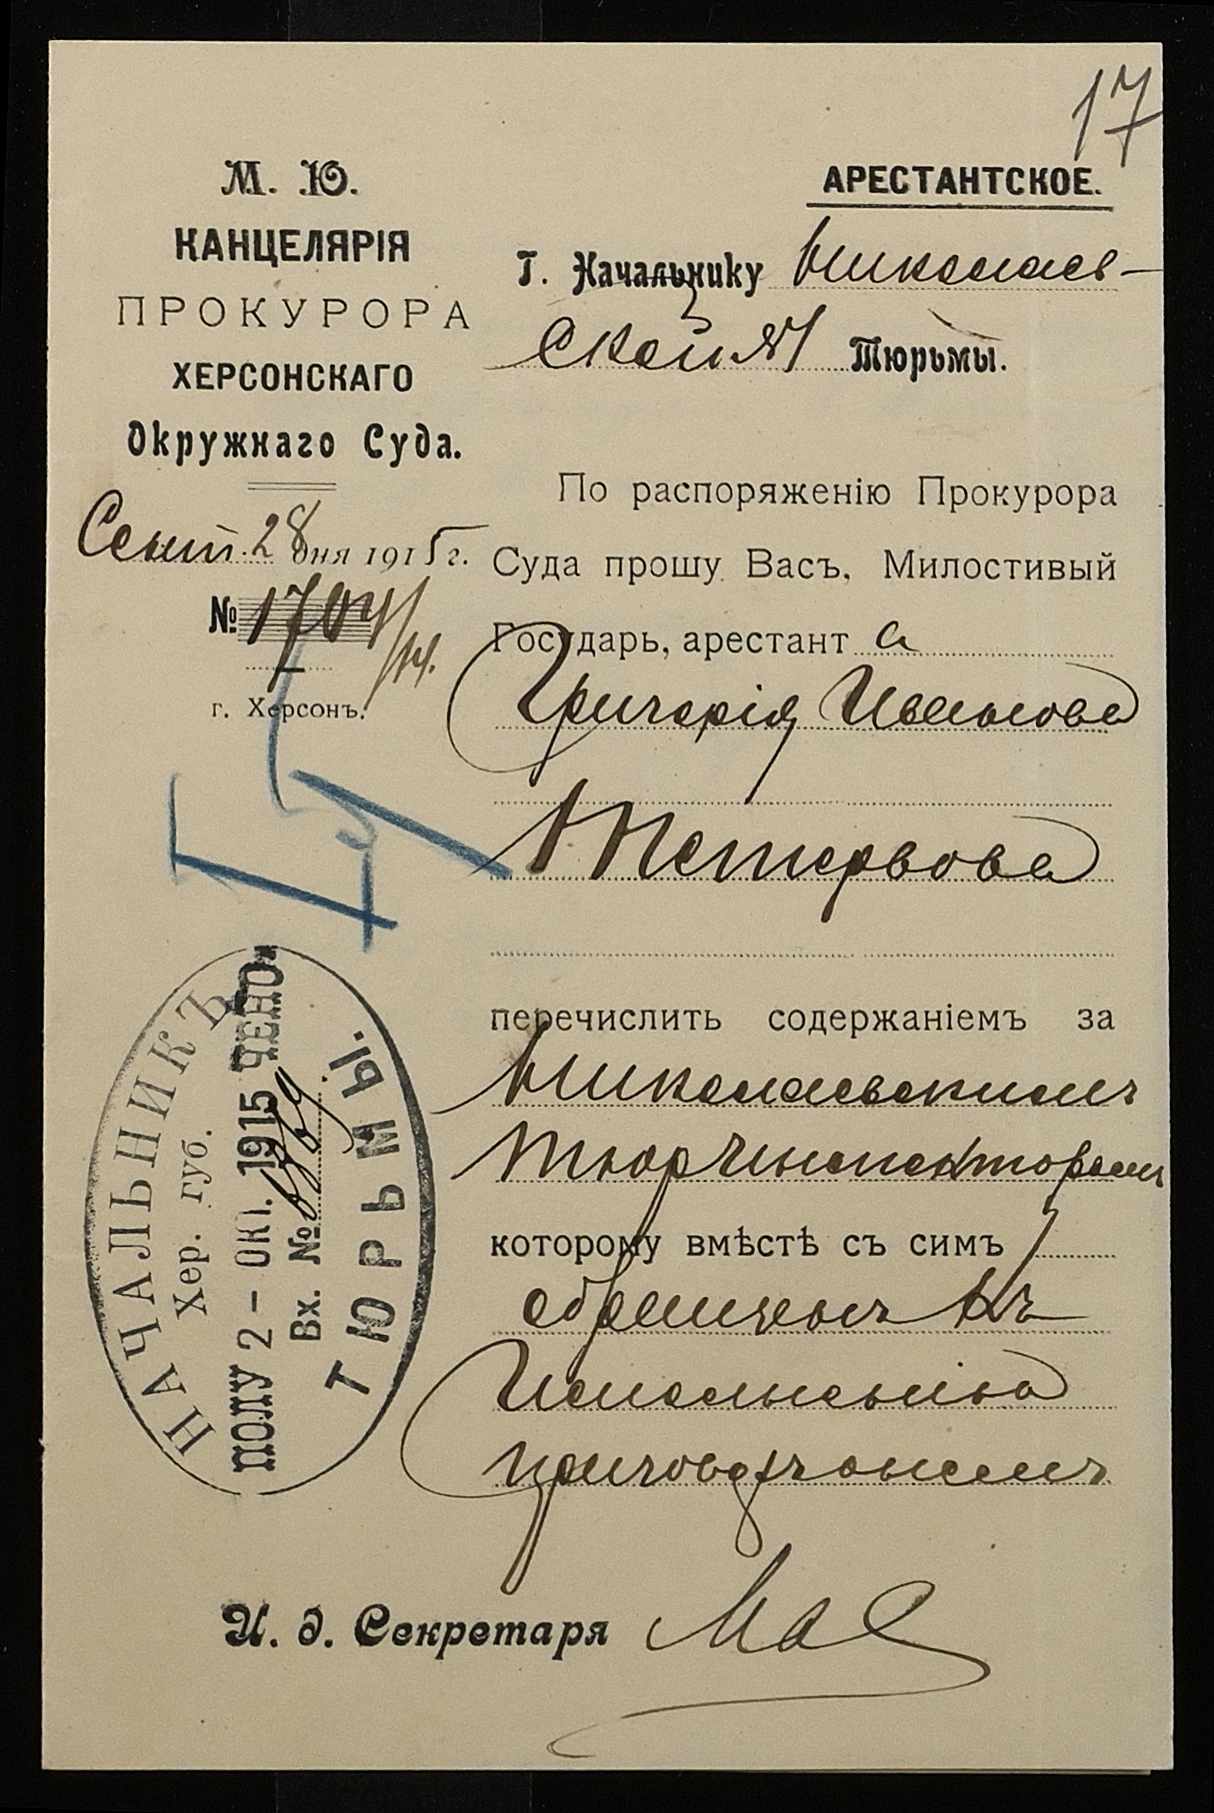 17
М. Ю.
КАНЦЕЛЯРІЯ
ПРОКУРОРА
ХЕРСОНСКАГО
Окружнаго Суда.
Сент. 28 дня 1915 г.
№ 1704/14.
г. Херсонъ.
АРЕСТАНТСКОЕ.
Г. Начальнику Николаев-
ской Тюрьмы.
По распоряженію Прокурора
Суда прошу Васъ, Милостивый
Государь, арестант а
Григорія Иванова
Тетервова
перечислить содержаніемъ за
Николаевскимъ
Тюр. Инспекторомъ
которому вмѣстѣ съ симъ
обращенъ къ
исполненію
приговоръ
НАЧАЛЬНИКЪ
Хер. губ.
ПОЛУ 2 - ОКТ. 1915 ЧЕНО
Вх. №
ТЮРЬМЫ.
И. д. Секретаря